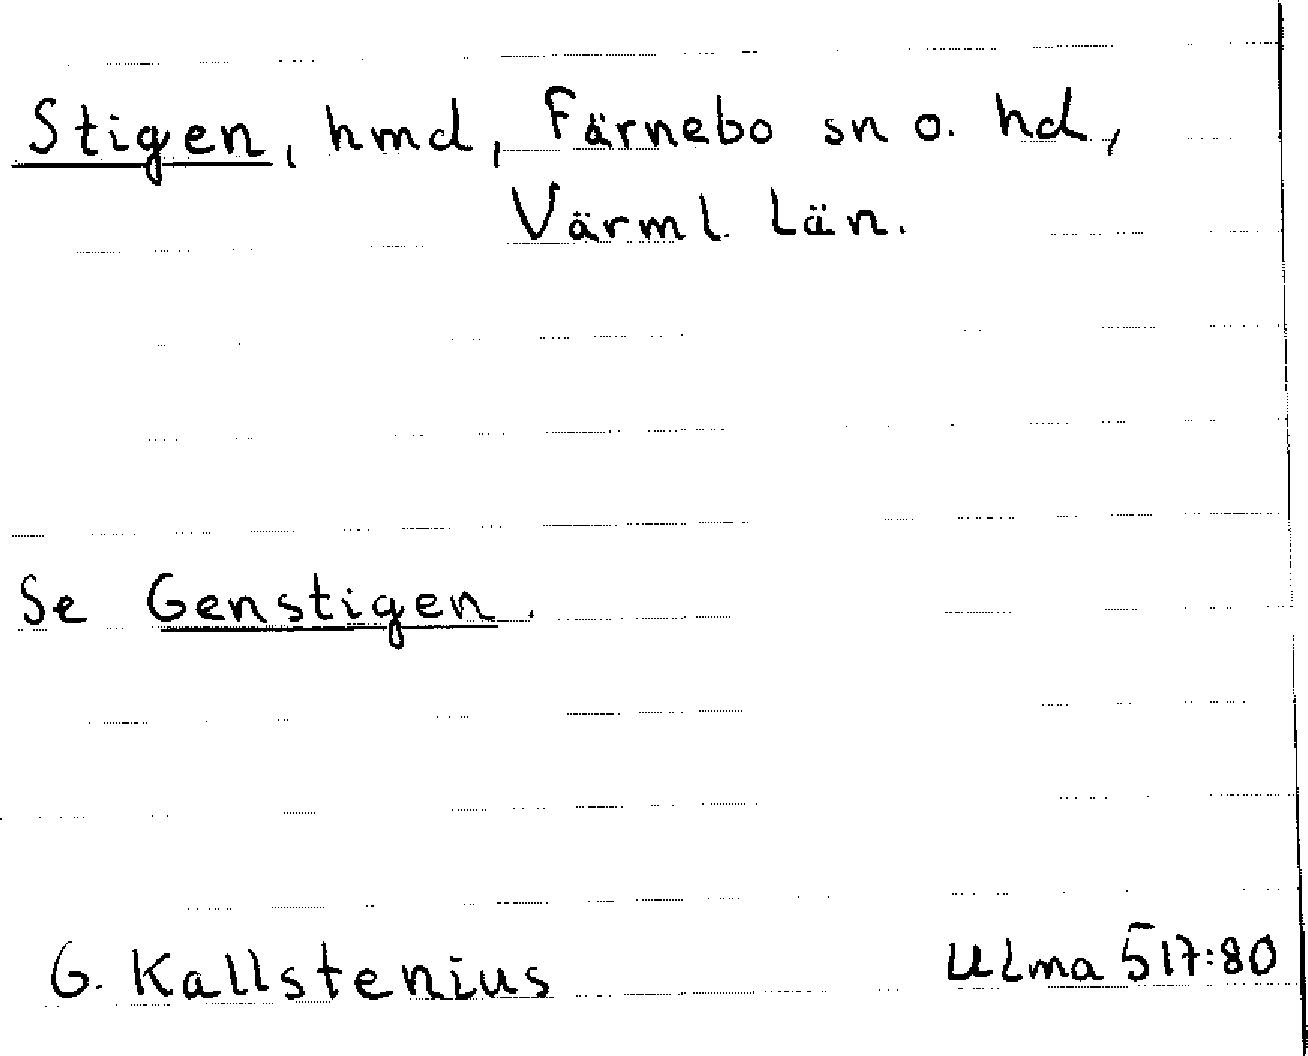 Stigen, hmd, Färnebo sn o. hd,
Värml. län.
Se Genstigen.
G. Kallstenius Ulma 517:80